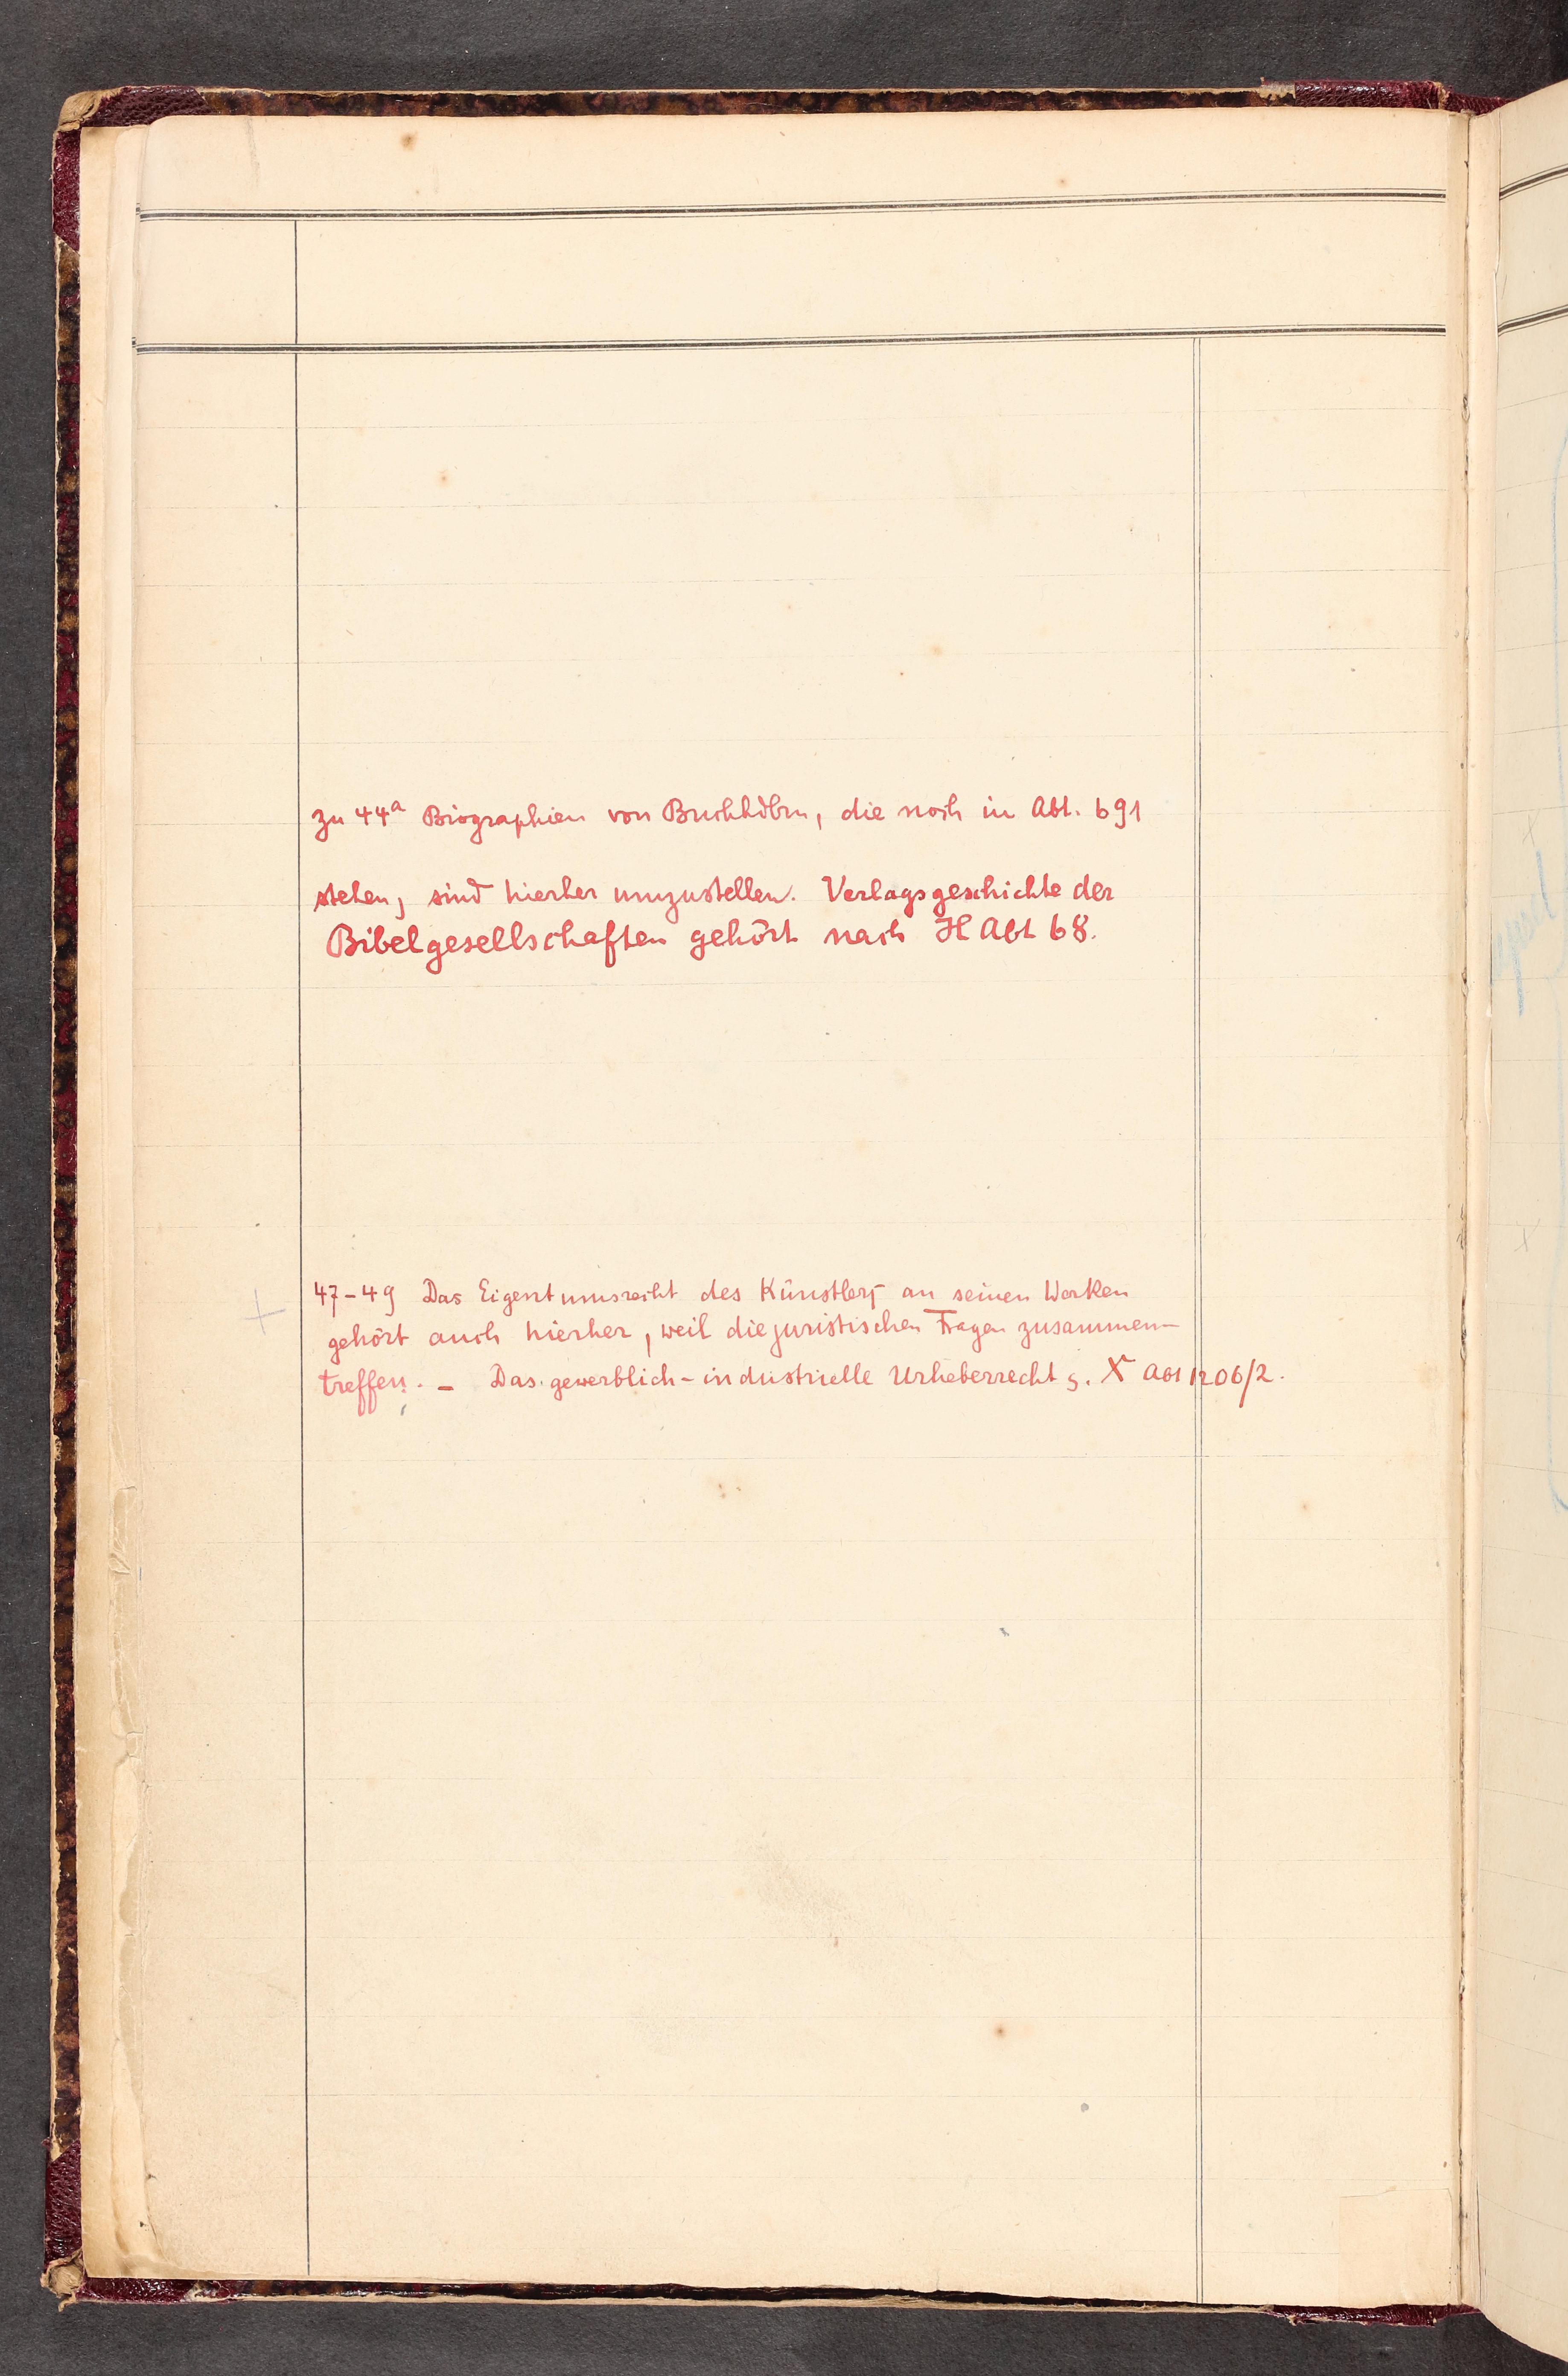 zu 44a Biographien von Buchhdlrn, die noch in Abt. 691
stehen, sind hierher umzustellen. Verlagsgeschichte der
Bibelgesellschaften gehört nach H Abt 68.
47-49 Das Eigentumsrecht des Künstlers an seinen Werken
gehört auch hierher, weil die juristischen Fragen zusammen-
treffen. - Das gewerblich-industrielle Urheberrecht s. X Abt 1206/2.